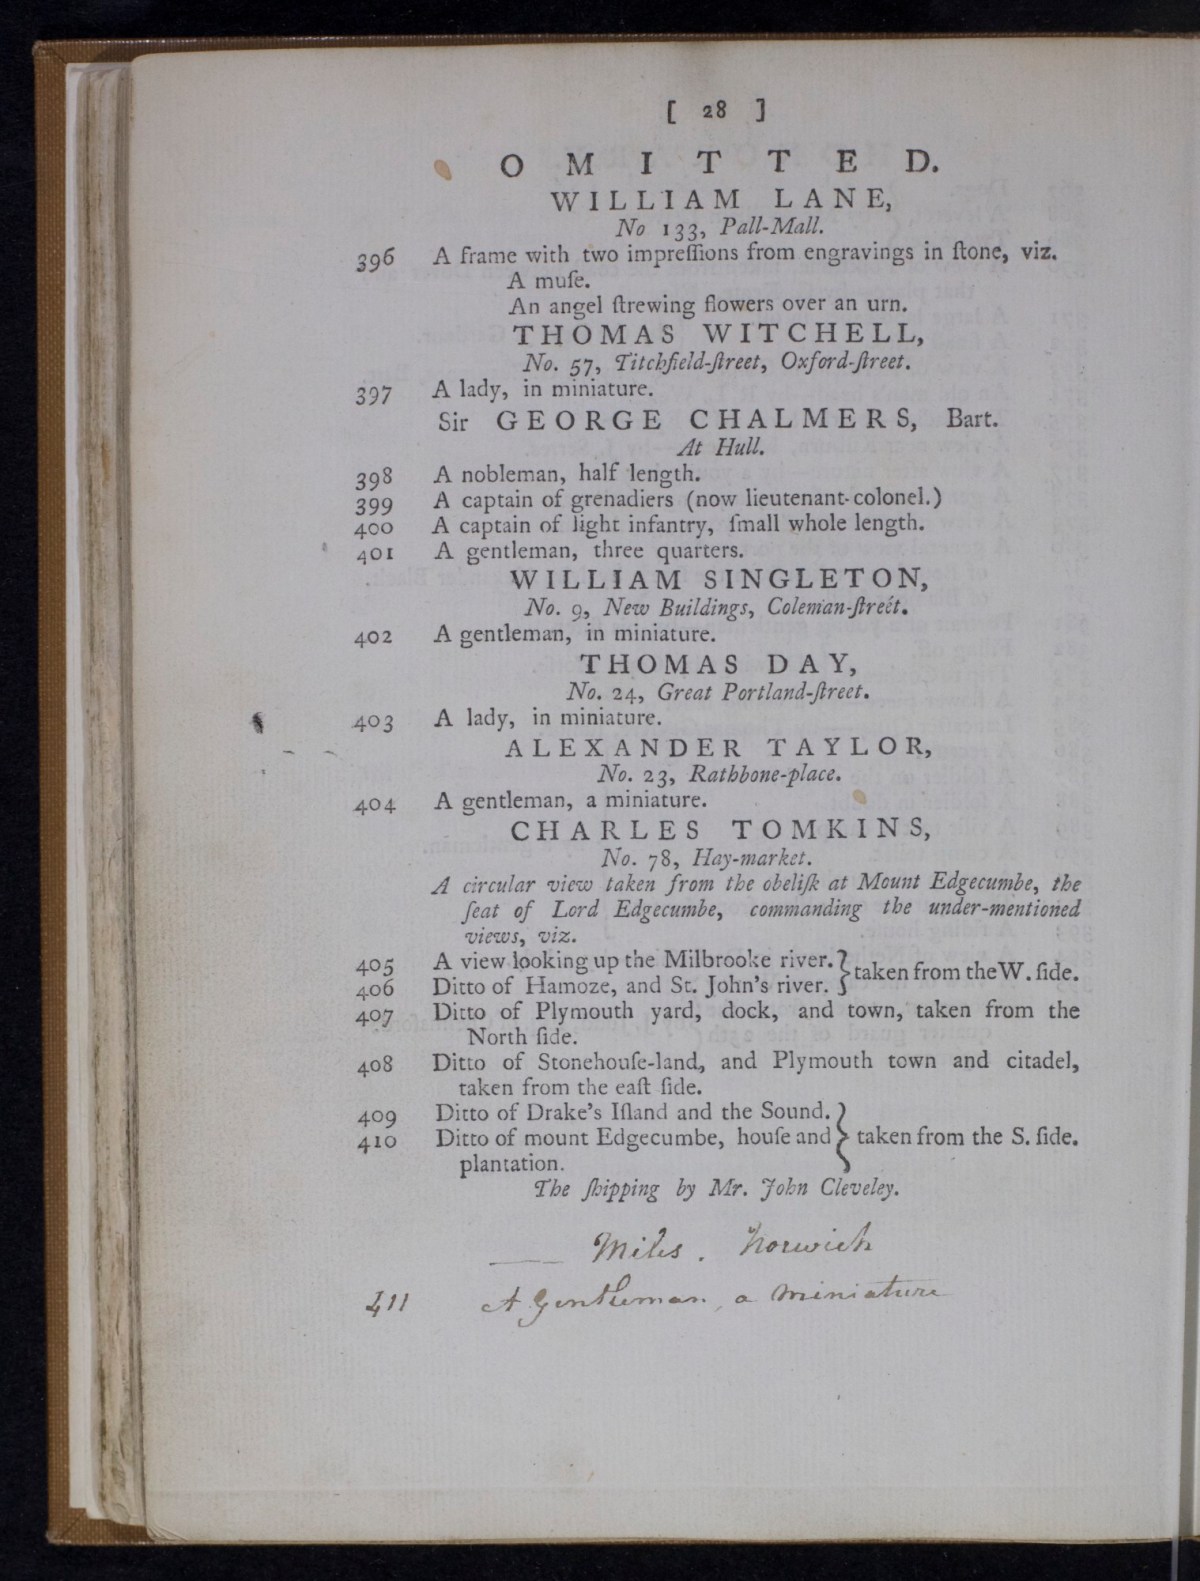 [ 28 ]
O M I T T E D.
WILLIAM LANE,
No 133, Pall-Mall.
396 A frame with two impreſſions from engravings in ſtone, viz.
A muſe.
An angel ſtrewing flowers over an urn.
THOMAS WITCHELL,
No. 57, Titchfield-ſtreet, Oxford-ſtreet.
397 A lady, in miniature.
Sir GEORGE CHALMERS, Bart.
At Hull.
398 A nobleman, half length.
399 A captain of grenadiers (now lieutenant-colonel.)
400 A captain of light infantry, ſmall whole length.
401 A gentleman, three quarters.
WILLIAM SINGLETON,
No. 9, New Buildings, Coleman-ſtreet.
402 A gentleman, in miniature.
THOMAS DAY,
No. 24, Great Portland-ſtreet.
403 A lady, in miniature.
ALEXANDER TAYLOR,
No. 23, Rathbone-place.
404 A gentleman, a miniature.
CHARLES TOMKINS,
No. 78, Hay-market.
A circular view taken from the obeliſk at Mount Edgecumbe, the
ſeat of Lord Edgecumbe, commanding the under-mentioned
views, viz.
405 A view looking up the Milbrooke river. } taken from the W. ſide.
406 Ditto of Hamoze, and St. John's river.
407 Ditto of Plymouth yard, dock, and town, taken from the
North ſide.
408 Ditto of Stonehouſe-land, and Plymouth town and citadel,
taken from the eaſt ſide.
409 Ditto of Drake's Iſland and the Sound.
410 Ditto of mount Edgecumbe, houſe and } taken from the S. ſide.
plantation.
The ſhipping by Mr. John Cleveley.
—— Miles. Norwich
411 A Gentleman, a Miniature